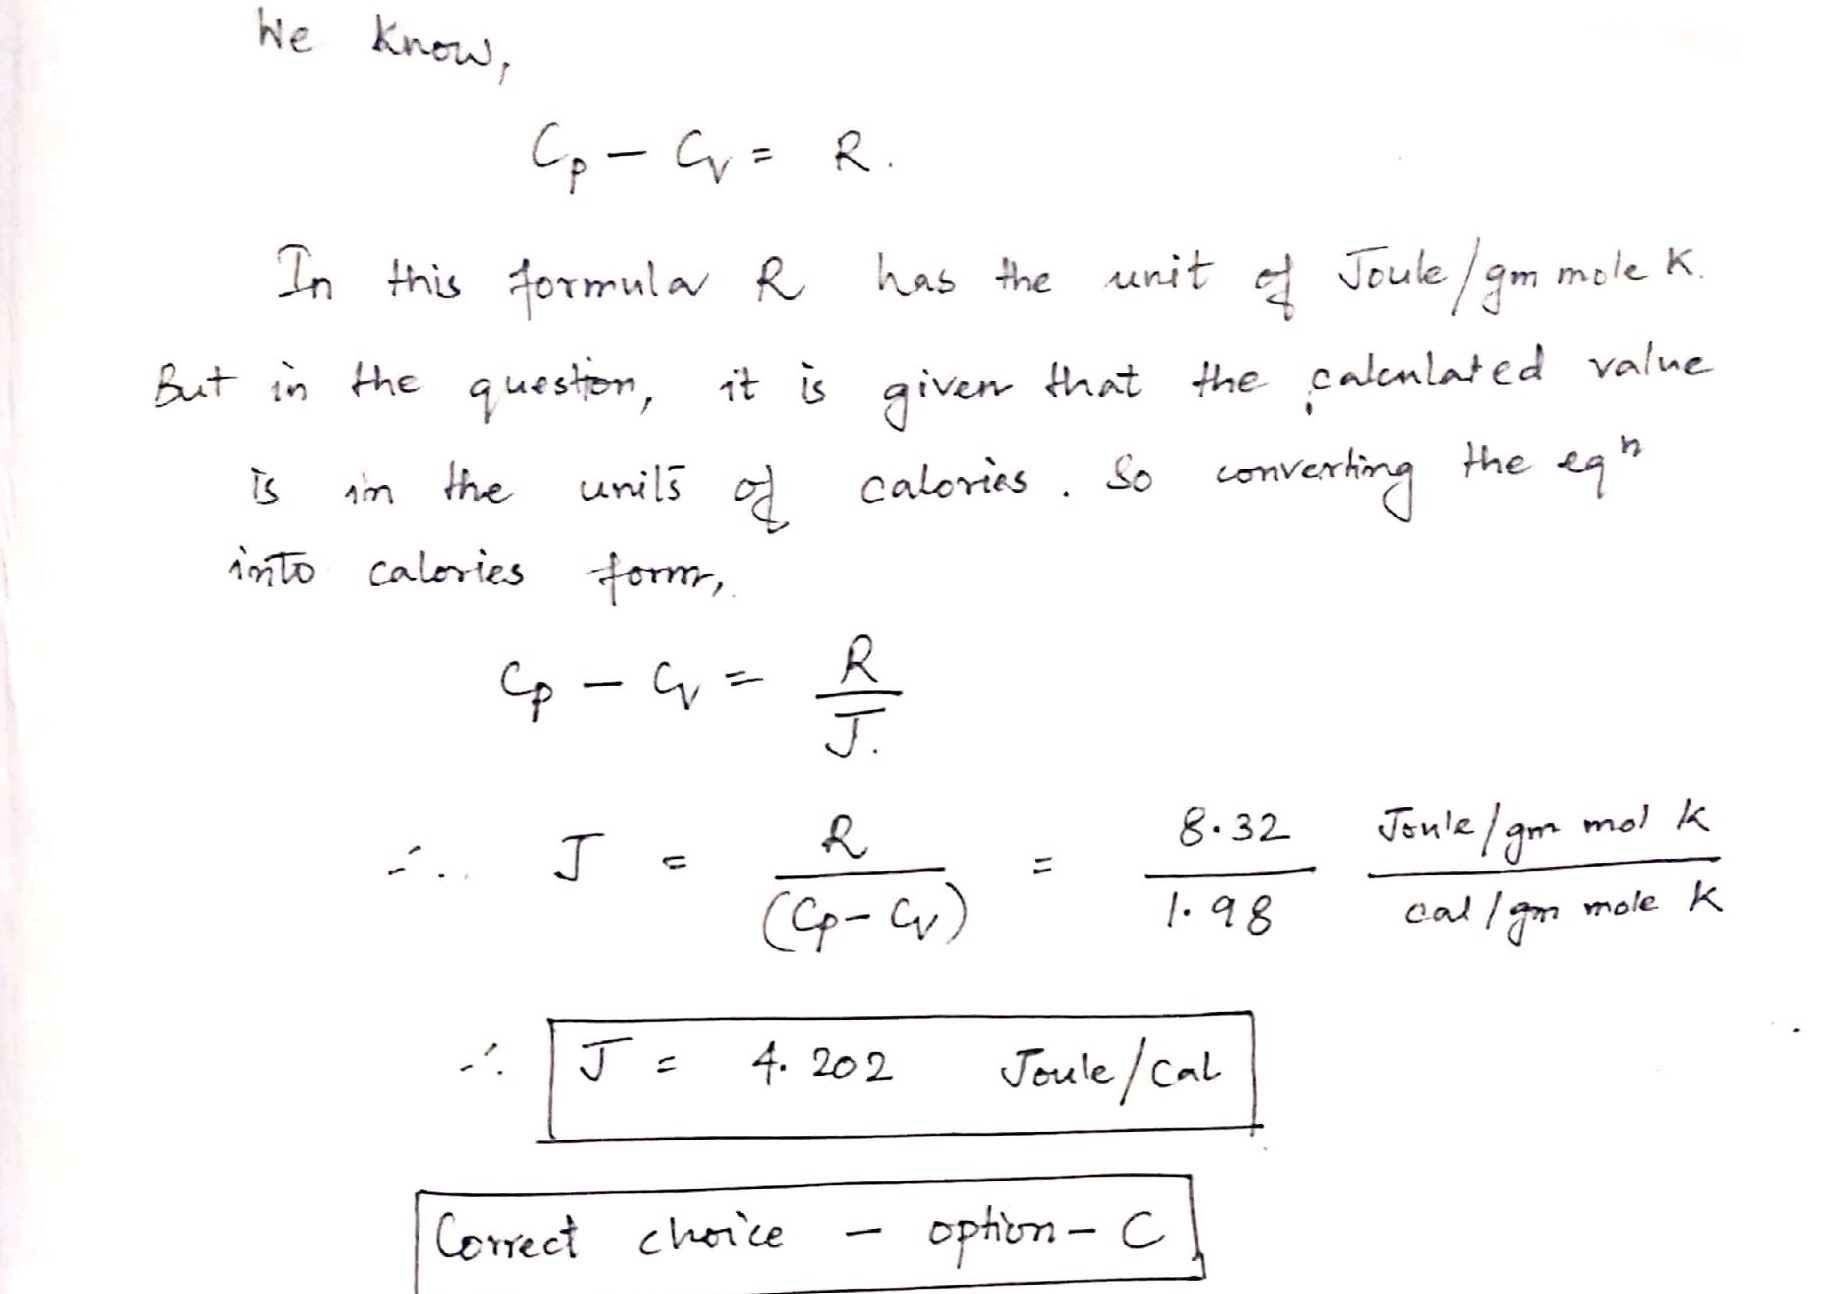 We know,
Cp - Cv = R.
In this formula R has the unit of Joule/gm mole K.
But in the question, it is given that the calculated value
is in the units of calories. So converting the eqⁿ
into calories form,
Cp - Cv = R/J.
∴ J = R/(Cp - Cv) = 8.32/1.98 Joule/gm mol K/cal/gm mole K
∴ J = 4.202 Joule/cal
Correct choice - option - C